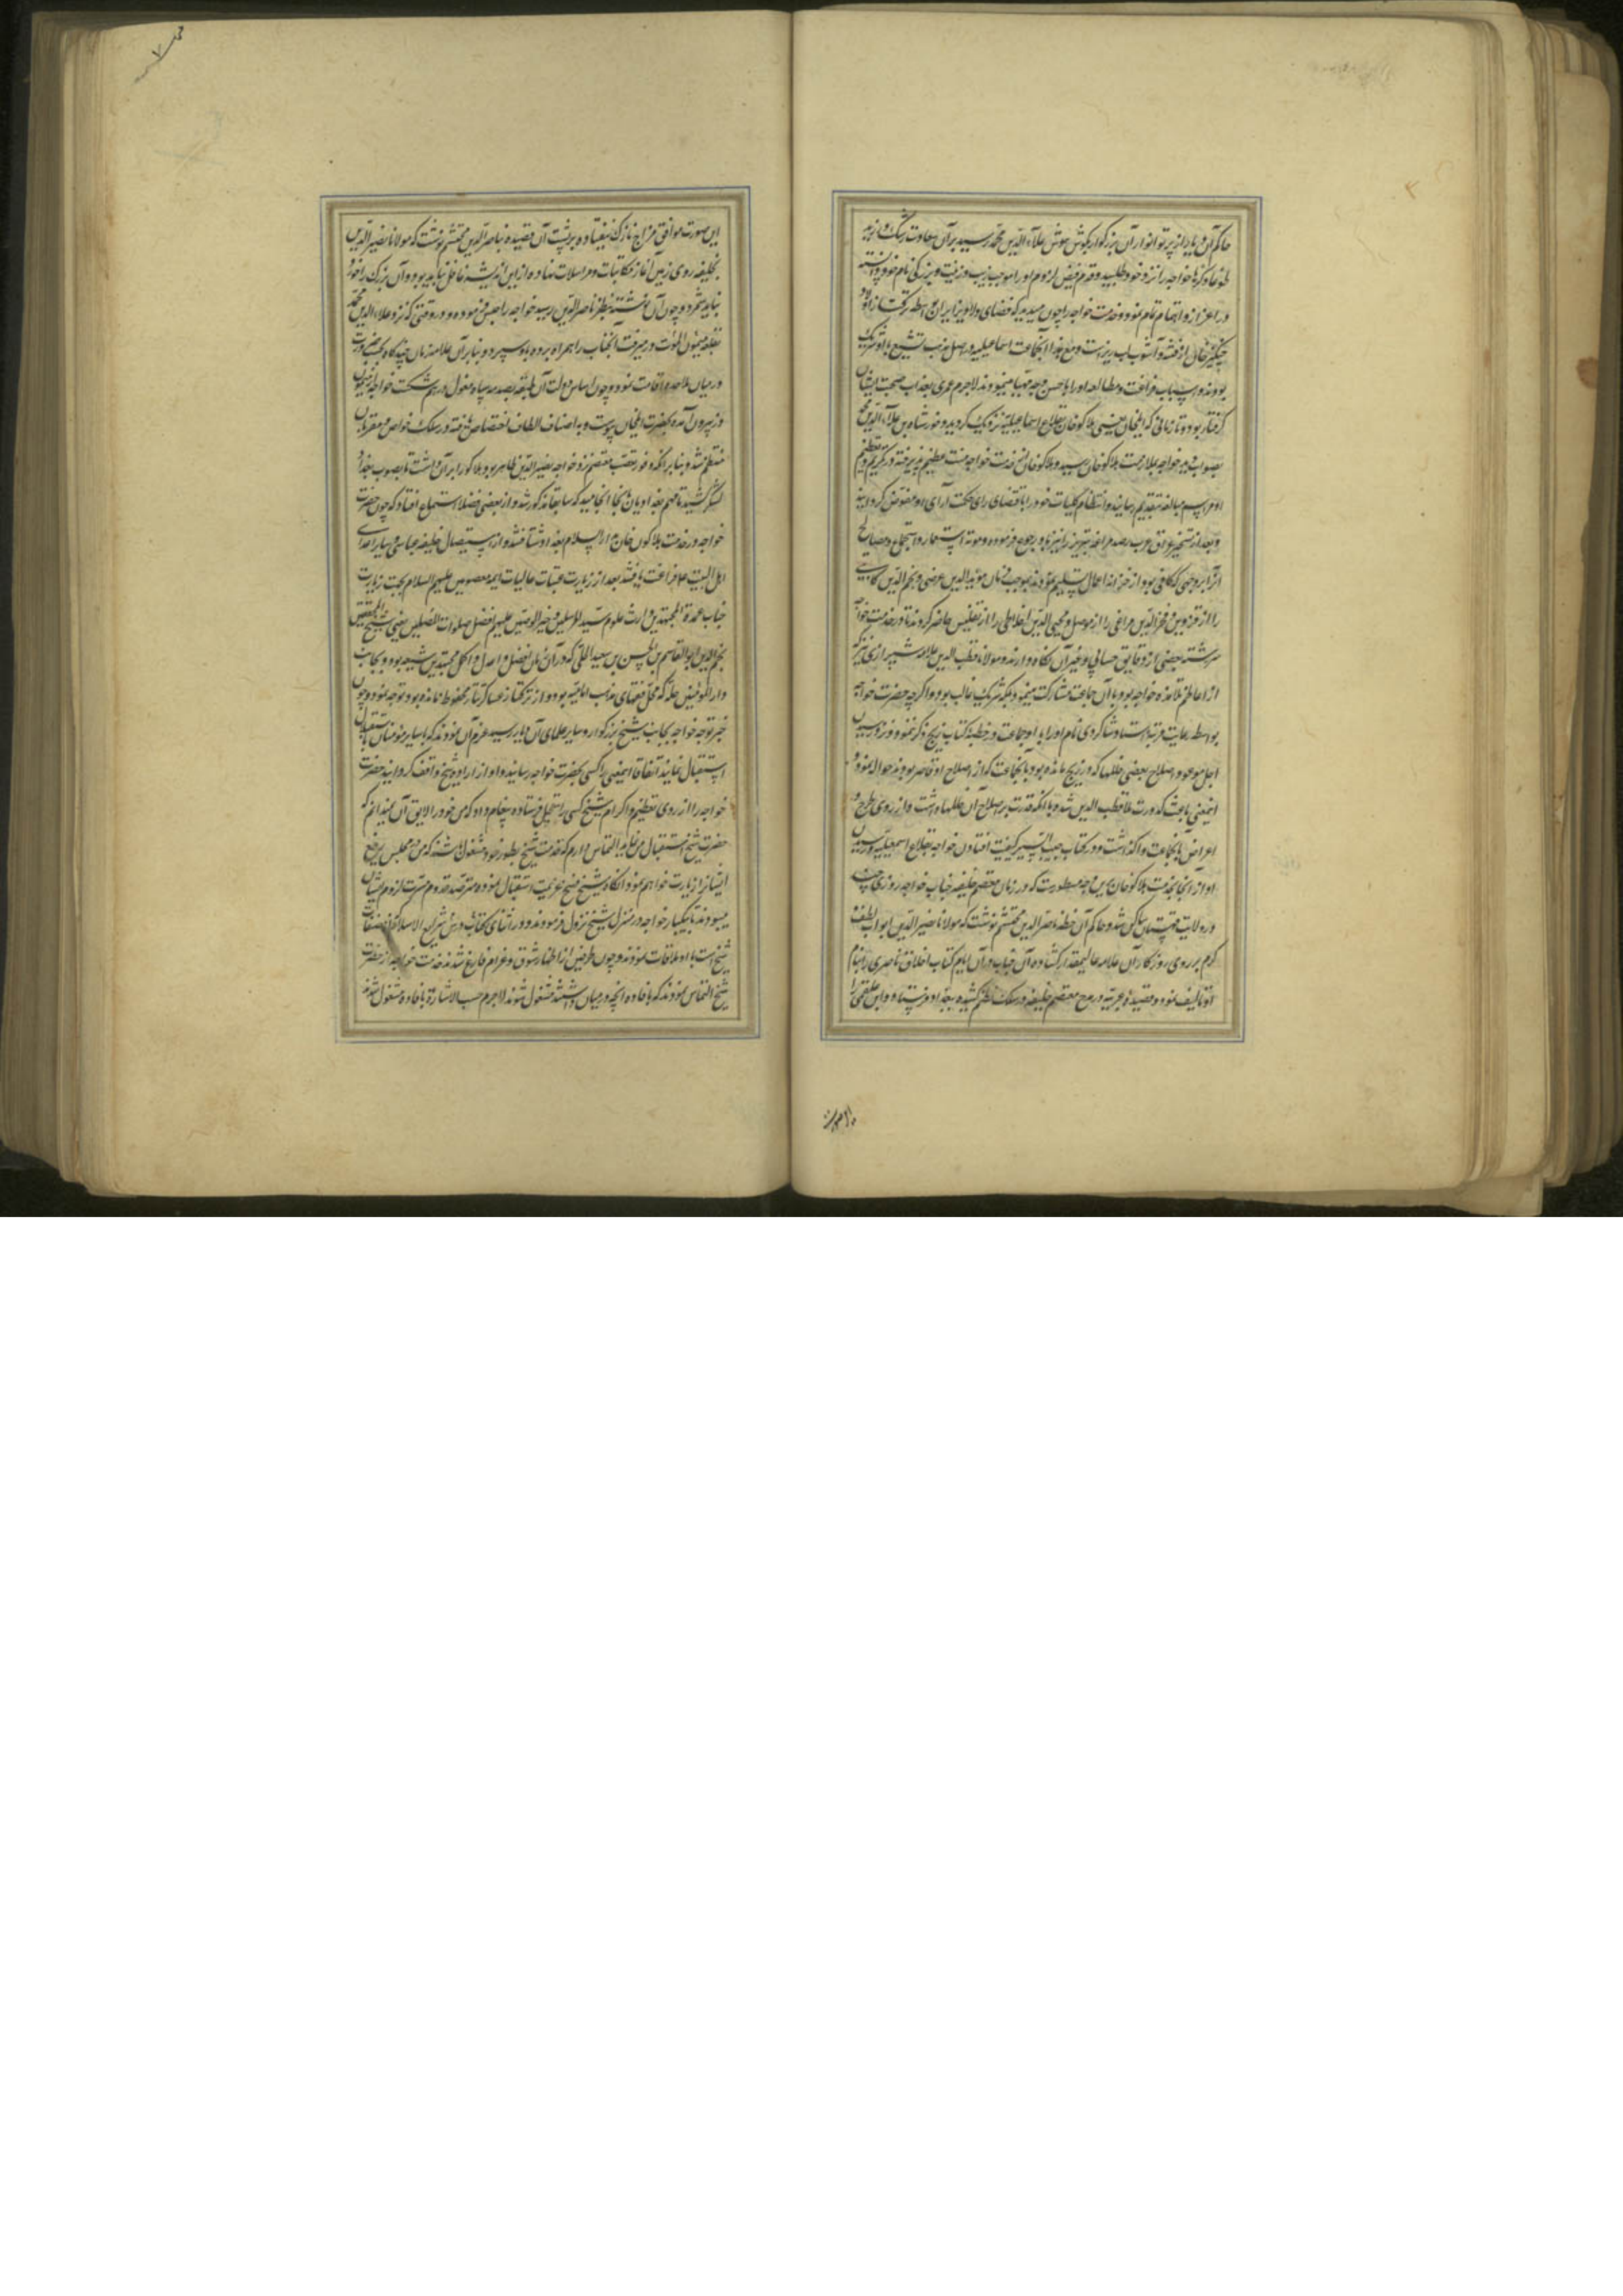 حاکم آن دیار از پرتو انوار آن بزرگوار بگوش هوش علاء الدین محمد رسید بر آن سعادت رشک
طوعا و کرها خواجه را نزد خود طلبید و قدوم فیض لزوم او را موجب زیب و زینت و بزرگی نام خود دانسته
در اعزاز و اهتمام تمام نمود و خدمت خواجه را چون میدید که فضای دلاویز ایران بواسطه ترکتاز اولاد
چنگیز خان از فتنه و آشوب لب ریز است و مع هذا آنجماعت اسماعیلیه در اصل مذهب تشیع با او شریک
بودند و اسباب فراغت و مطالعه او را باحسن وجه مهیا مینمودند لاجرم عمری بعذاب صحبت ایشان
گرفتار بود و تا زمانی که ایلخان یعنی هلاکو خان بقلاع اسماعیلیه نزدیک گردید و خورشاه بن علاء الدین محمد
بصواب دید خواجه بملازمت هلاکو خان رسید و هلاکو خان از خدمت خواجه منت عظیم پذیرفته در تکریم و تعظیم
او مراسم مبالغه بتقدیم رسانید و انتظام کلیات خود را باقتضای رای حکمت آرای او مفوض گردانید
و بعد از تسخیر عراق عرب رصد مراغه تبریز را نیز باو رجوع فرموده و مونه استعمار و استجماع و مصالح
آنرا بر وجهی که کافی بود از خزانه اعمال تسلیم نمودند بموجب فرمان مؤید الدین عرضی و نجم الدین کاتبی
را از قزوین و فخر الدین مراغی را از موصل و محیی الدین اخلاطی را از تفلیس حاضر کردند تا در خدمت خواجه
سررشته بعضی از دقایق حسابی و غیر آن نگاه دارند و مولانا قطب الدین علامه شیرازی نیز که
از اعاظم تلامذه خواجه بود با آن جماعت مشارکت مینمود بلکه شریک غالب بود و اگرچه حضرت خواجه
بواسطه رعایت مرتبه استاد و شاگردی نام او را با او جماعت در خطبه کتاب زیج ذکر ننمود و نزد رسیدن
اجل موعود اصلاح بعضی خللها که در زیج مانده بود بآنجماعت که از اصلاح او قاصر بودند حواله نمود و
اینمعنی باعث کدورت ملا قطب الدین شده با آنکه قدرت بر اصلاح آن خللها داشت و از روی طرح و
اعراض بآنجماعت واگذاشت و در کتاب حبیب السیر کیفیت افتادن خواجه بقلاع اسمعیلیه و رسیدن
او از آنجا بخدمت هلاکو خان بدین وجه مسطور است که در زمان معتصم خلیفه جناب خواجه روزی چند
در ولایت قهستان ساکن شد و حاکم آن خطه ناصر الدین محتشم نوشت که مولانا نصیر الدین ابواب لطف و
کرم بر روی روزگار آن علامه عالیمقدار گشاده آن جناب در آن ایام کتاب اخلاق ناصری را بنام
او تالیف نمود و قصیده عربیه در مدح معتصم خلیفه در سلک نظم کشیده ببغداد فرستاد و ابن علقمی را
این صورت موافق مزاج نازک نیفتاده بر پشت آن قصیده بناصر الدین محتشم نوشت که مولانا نصیر الدین
بخلیفه روی زمین آغاز مکاتبات و مراسلات نهاده از این اندیشه غافل نباید بود و آن بزرگ را خورد
نباید شمرد و چون آن نوشته بنظر ناصر الدین رسید خواجه را حبس فرموده و در وقتی که نزد علاء الدین محمد
بقلعه میمون الموت در میرفت آنجناب را همراه برده باو سپرد و بنا بر آن علامه زمان چندگاه بحسب ضرورت
در میان ملاحده اقامت نمود و چون اساس دولت آن طبقه بصدمه سپاه مغول درهم شکست خواجه از میمون
دز بیرون آمده بحضرت ایلخان پیوست و باصناف الطاف اختصاص یافته در سلک خواص و مقربان
منتظم شد و بنا بر آنکه وفور تعصب معتصم نزد خواجه نصیر الدین ظاهر بود هلاکو را بر آن داشت تا بصوب بغداد
لشکر کشید تا مهم بغدادیان بدانجا انجامید که سابقا مذکور شد و از بعضی فضلا استماع افتاد که چون حضرت
خواجه در خدمت هلاکو خان بدار السلام بغداد شتافتند و از استیصال خلیفه عباسی و سایر اعدای
اهل البیت علیهم فراغت یافتند بعد از زیارت عتبات عالیات ائمه معصومین علیهم السلام بجهت زیارت
جناب عمدة المجتهدین وارث علوم سید المرسلین و خیر الوصیین علیهم افضل صلوات المصلین یعنی شیخ المحققین
نجم الدین ابوالقاسم بن الحسن بن سعید الحلی که در آن زمان افضل و اعدل و اکمل مجتهدین شیعه بود و بجانب
دار المؤمنین حله که محل فقهای مذهب امامیه بود و از ترکتاز عساکر تتار محفوظ مانده بود توجه نمود و چون
خبر توجه خواجه بجانب شیخ بزرگوار و سایر علمای آن دیار رسید عزم آن نمودند که با سایر مؤمنان باستقبال
استقبال نمایند اتفاقا اینمعنی را کسی بحضرت خواجه رسانید و او از اراده شیخ واقف گردانید حضرت
خواجه را از روی تعظیم و اکرام شیخ کسی را تعجیل فرستاده پیغام داد که من خود را لایق آن نمیدانم که
حضرت شیخ استقبال من نماید التماس دارم که خدمت شیخ بطور خود مشغول باشند که من در مجلس درس
ایشانرا زیارت خواهم نمود آنگاه شیخ فسخ عزیمت استقبال نموده مترصد قدوم مسرت لزوم ایشان
میبودند تا بیکبار خواجه در منزل شیخ نزول فرمودند و در اثنای آنکه درس شرایع الاسلام که از مصنفات
شیخ است با او ملاقات نمودند و چون طرفین از اظهار شوق و غرام فارغ شدند خدمت خواجه از حضرت
شیخ التماس نمودند که بافاده آنچه در میان داشتند مشغول شوند لاجرم حسب الاشاره بافاده مشغول شدند